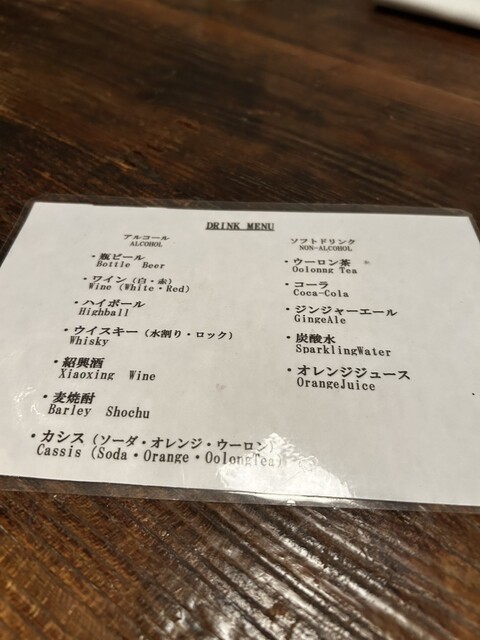 DRINK MENU
アルコール
ALCOHOL
・瓶ビール
Bottle Beer
・ワイン（白・赤）
Wine (White・Red)
・ハイボール
Highball
・ウイスキー（水割り・ロック）
Whisky
・紹興酒
Xiaoxing Wine
・麦焼酎
Barley Shochu
・カシス（ソーダ・オレンジ・ウーロン）
Cassis (Soda・Orange・OolongTea)
ソフトドリンク
NON-ALCOHOL
・ウーロン茶
Oolonng Tea
・コーラ
Coca-Cola
・ジンジャーエール
GingeAle
・炭酸水
SparklingWater
・オレンジジュース
OrangeJuice